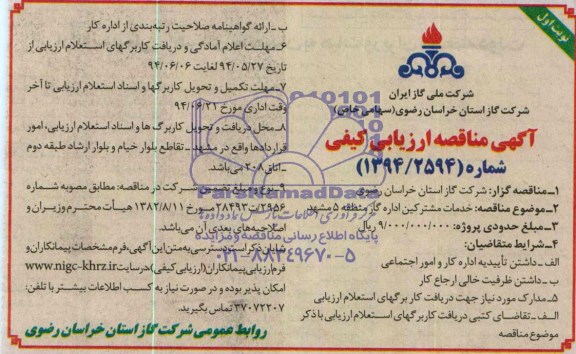 نوبت اول
شرکت ملی گاز ایران
شرکت گاز استان خراسان رضوی (سهامی خاص)
آگهی مناقصه ارزیابی کیفی
شماره (۱۳۹۴/۲۵۹۴)
۱ـ مناقصه گزار: شرکت گاز استان خراسان رضوی
۲ـ موضوع مناقصه: خدمات مشترکین اداره گاز منطقه ۵ مشهد
۳ـ مبلغ حدودی پروژه: ۹/۰۰۰/۰۰۰/۰۰۰ ریال
۴ـ شرایط متقاضیان:
الف ـ داشتن تأییدیه اداره کار و امور اجتماعی
ب ـ داشتن ظرفیت خالی ارجاع کار
۵ـ مدارک مورد نیاز جهت دریافت کاربرگهای استعلام ارزیابی
الف ـ تقاضای کتبی دریافت کاربرگهای استعلام ارزیابی با ذکر
موضوع مناقصه
ب ـ ارائه گواهینامه صلاحیت رتبه‌بندی از اداره کار
۶ـ مهلت اعلام آمادگی و دریافت کاربرگهای استعلام ارزیابی از
تاریخ ۹۴/۰۵/۲۷ لغایت ۹۴/۰۶/۰۶
۷ـ مهلت تکمیل و تحویل کاربرگها و اسناد استعلام ارزیابی تا آخر
وقت اداری مورخ ۹۴/۰۶/۲۱
۸ـ محل دریافت و تحویل کاربرگ ها و اسناد استعلام ارزیابی، امور
قراردادها واقع در مشهد ـ تقاطع بلوار خیام و بلوار ارشاد طبقه دوم
ـ اتاق ۲۰۸ می‌باشد.
۹ـ نوع و مبلغ تضمین شرکت در مناقصه: مطابق مصوبه شماره
۲۸۴۹۳ت۲۹۵۶ مورخ ۱۳۸۲/۸/۱۱ هیأت محترم وزیران و
اصلاحیه‌های بعدی آن می‌باشد.
شایان ذکر است دسترسی به متن این آگهی، فرم مشخصات پیمانکاران و
فرم ارزیابی پیمانکاران (ارزیابی کیفی) در سایت www.nigc-khrz.ir
امکان پذیر بوده و در صورت نیاز به کسب اطلاعات بیشتر با تلفن:
۳۷۰۷۲۲۰۷ تماس بگیرید.
روابط عمومی شرکت گاز استان خراسان رضوی
پایگاه اطلاع رسانی مناقصه و مزایده
۰۲۱-۸۸۳۴۹۶۷۰-۵